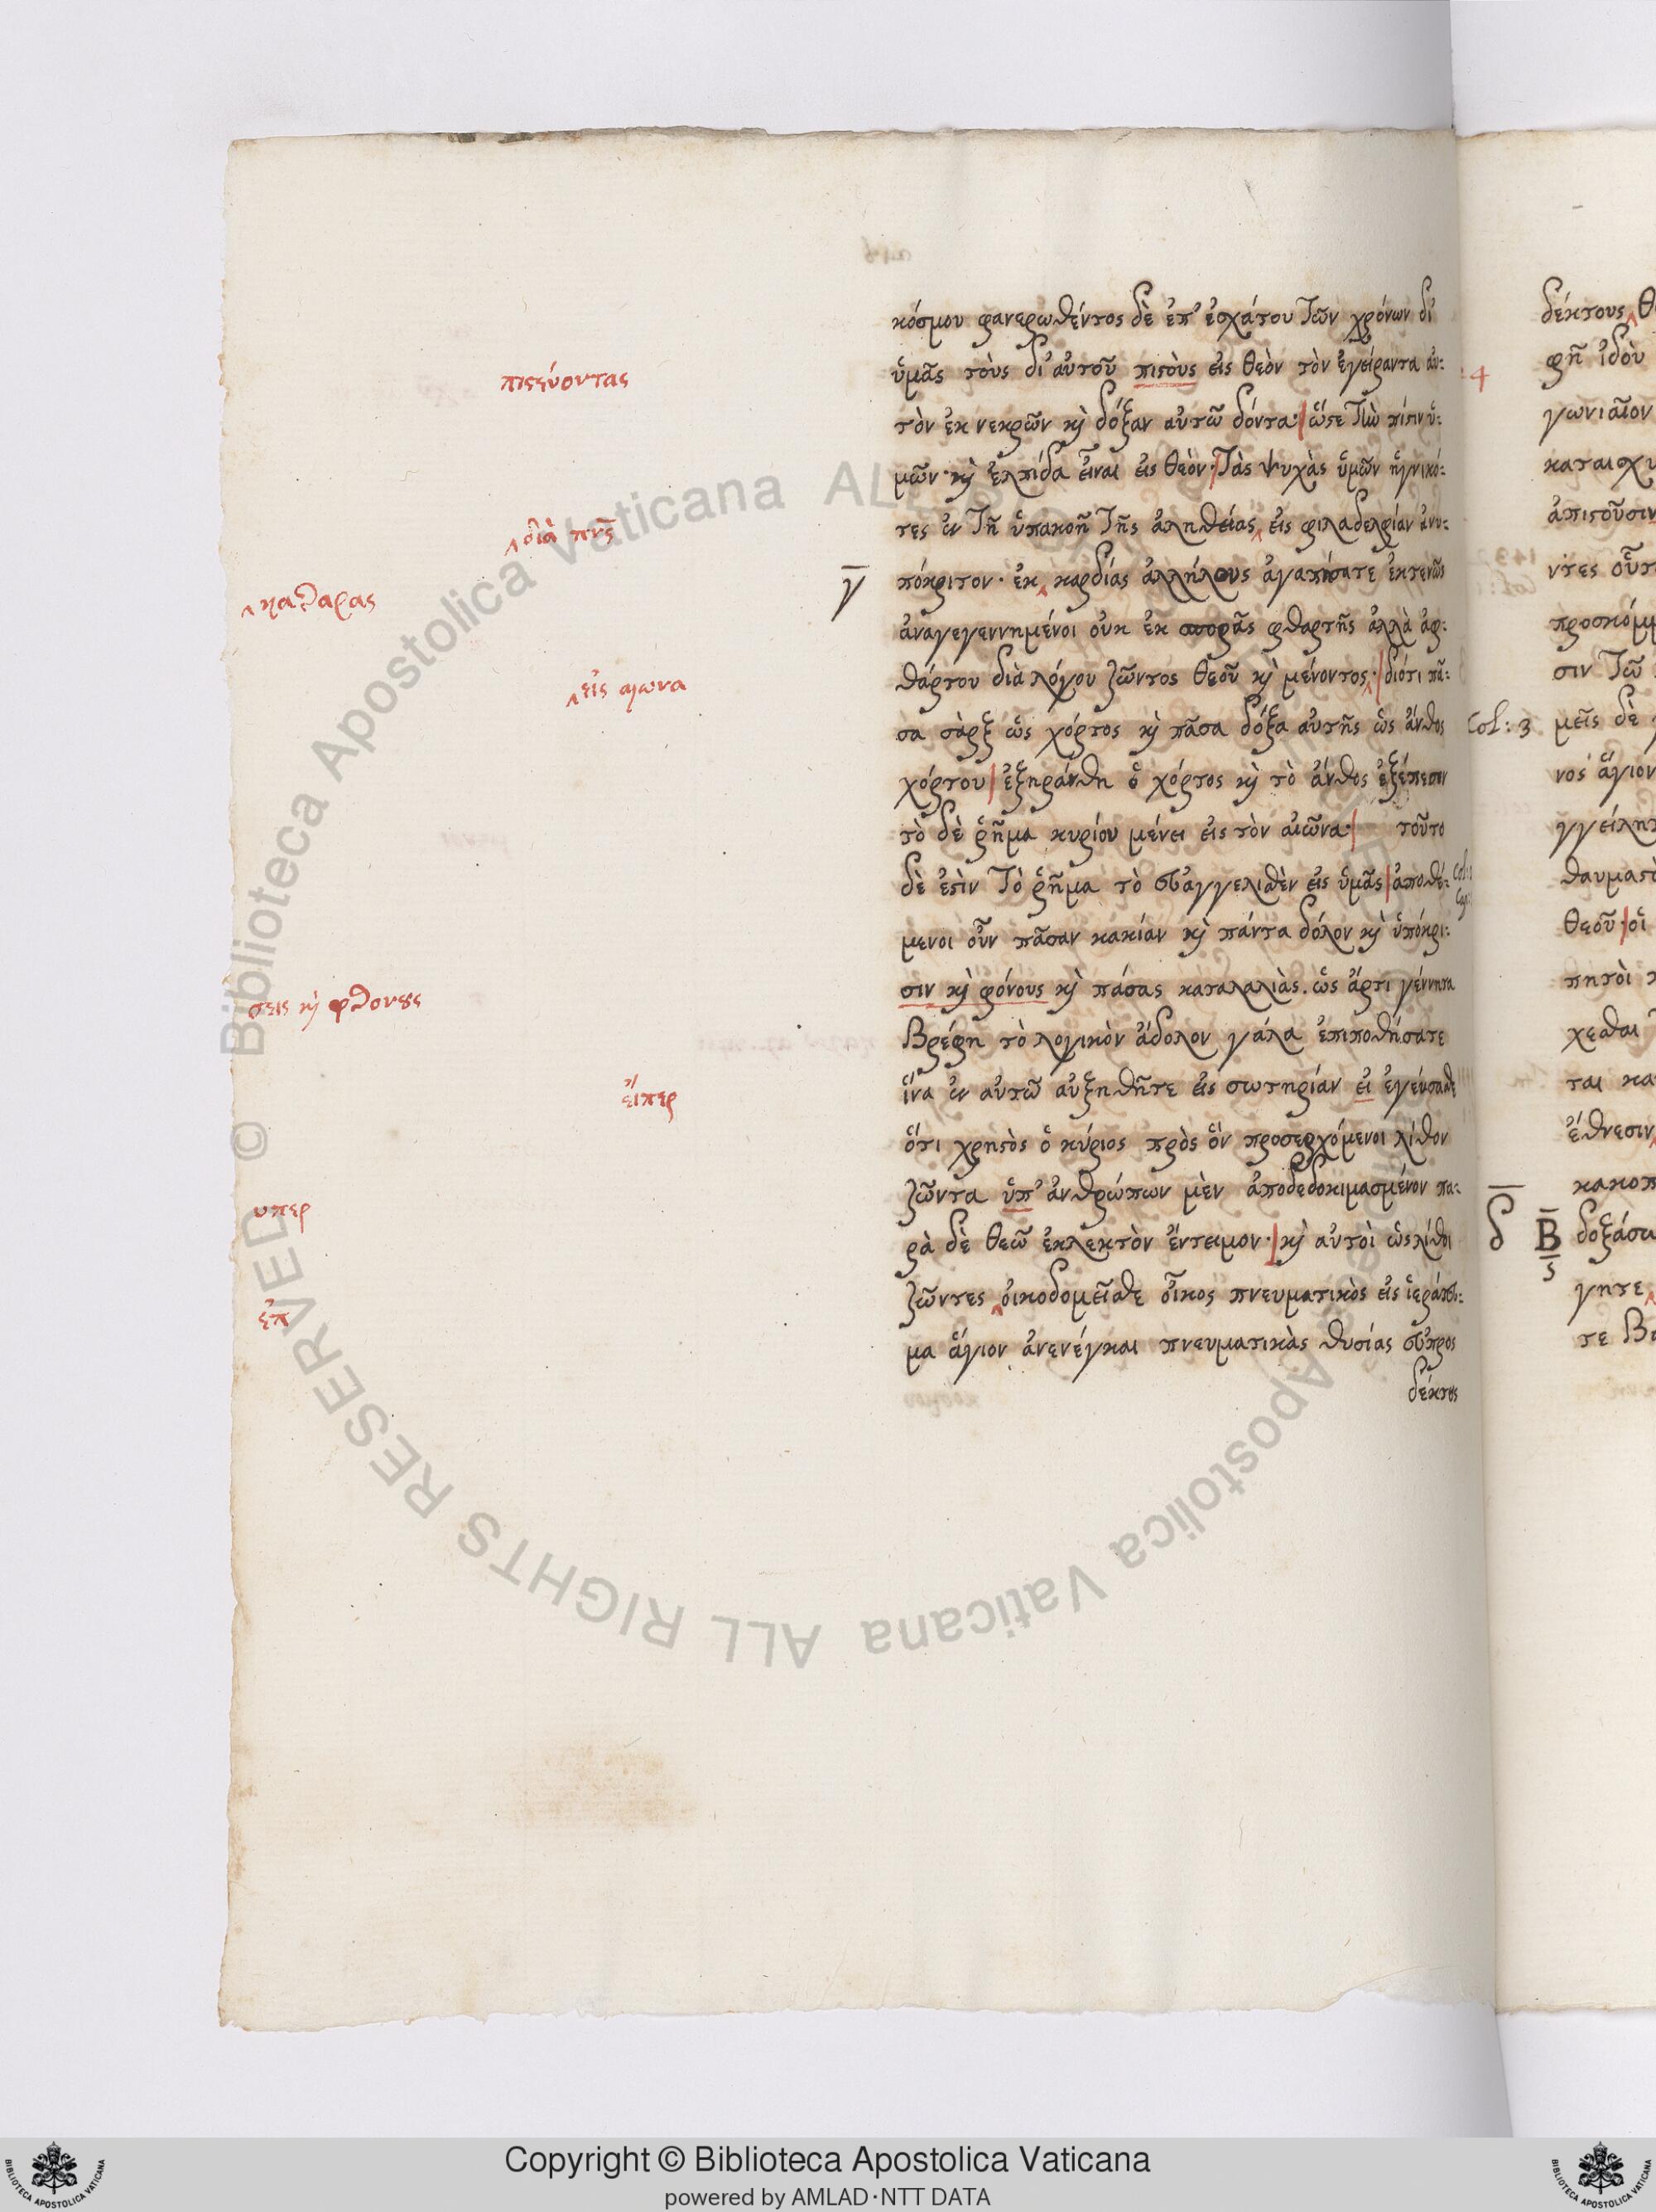 κόσμου φανερωθέντος δὲ ἐπ' ἐσχάτου τῶν χρόνων δι'
ὑμᾶς τοὺς δι' αὐτοῦ πιστοὺς εἰς θεὸν τὸν ἐγείραντα αὐ:
πιστεύοντας
τὸν ἐκ νεκρῶν κ δόξαν αὐτῶ δόντα· ὥστε τὴν πίστιν ὑ:
μῶν· κ ἐλπίδα εἶναι εἰς θεὸν· τὰς ψυχὰς ὑμῶν ἡγνικό:
τες ἐν τῆ ὑπακοῆ τῆς ἀληθείας εἰς φιλαδελφίαν ἀνυ:
διὰ πνς
γ πόκριτον· ἐκ καρδίας ἀλλήλους ἀγαπήσατε ἐκτενῶς
καθαρας
ἀναγεγεννημένοι οὐκ ἐκ σπορᾶς φθαρτῆς ἀλλὰ ἀφ:
θάρτου διὰ λόγου ζῶντος θεοῦ κ μένοντος· διότι πᾶ:
εἰς αιωνα
σα σὰρξ ὡς χόρτος κ πᾶσα δόξα αὐτῆς ὡς ἄνθος
χόρτου ἐξηράνθη ὁ χόρτος κ τὸ ἄνθος ἐξέπεσεν
τὸ δὲ ῥῆμα κυρίου μένει εἰς τὸν αἰῶνα· τοῦτο
δὲ ἐστὶν τὸ ῥῆμα τὸ εὐαγγελισθὲν εἰς ὑμᾶς ἀποθέ:
μενοι οὖν πᾶσαν κακίαν κ πάντα δόλον κ ὑπόκρι:
σιν κ φόνους κ πάσας καταλαλιὰς. ὡς ἄρτι γέννητα
σεις κ φθονους
βρέφη τὸ λογικὸν ἄδολον γάλα ἐπιποθήσατε
ἵνα ἐν αὐτῶ αὐξηθῆτε εἰς σωτηρίαν εἰ ἐγεύσασθε
εἴπερ
ὅτι χρηστὸς ὁ κύριος πρὸς ὃν προσερχόμενοι λίθον
ζῶντα ὑπ' ἀνθρώπων μὲν ἀποδεδοκιμασμένον πα:
υπερ
ρὰ δὲ θεῶ ἐκλεκτὸν ἔντειμον· κ αὐτοὶ ὡς λίθοι
ζῶντες οἰκοδομεῖσθε οἶκος πνευματικὸς εἰς ἱεράτευ:
ἐπ
μα ἅγιον ἀνενέγκαι πνευματικὰς θυσίας εὐπροσ
δέκτους
δέκτους
φῆ ἰδοὺ
4
γωνιαῖον
καταισχυ
ἀπιστοῦσιν
ντες οὗτ
προσκόμμ
σιν τῶ
Col: 3 μεῖς δὲ
νος ἅγιον
γγείλητ
θαυμαστὸ
θεοῦ· οἱ
πητοὶ
χεσθαι
ται κα
ἔθνεσιν
κακοπ
δ Β δοξάσω
γητε
τε Βα
Copyright © Biblioteca Apostolica Vaticana
powered by AMLAD·NTT DATA